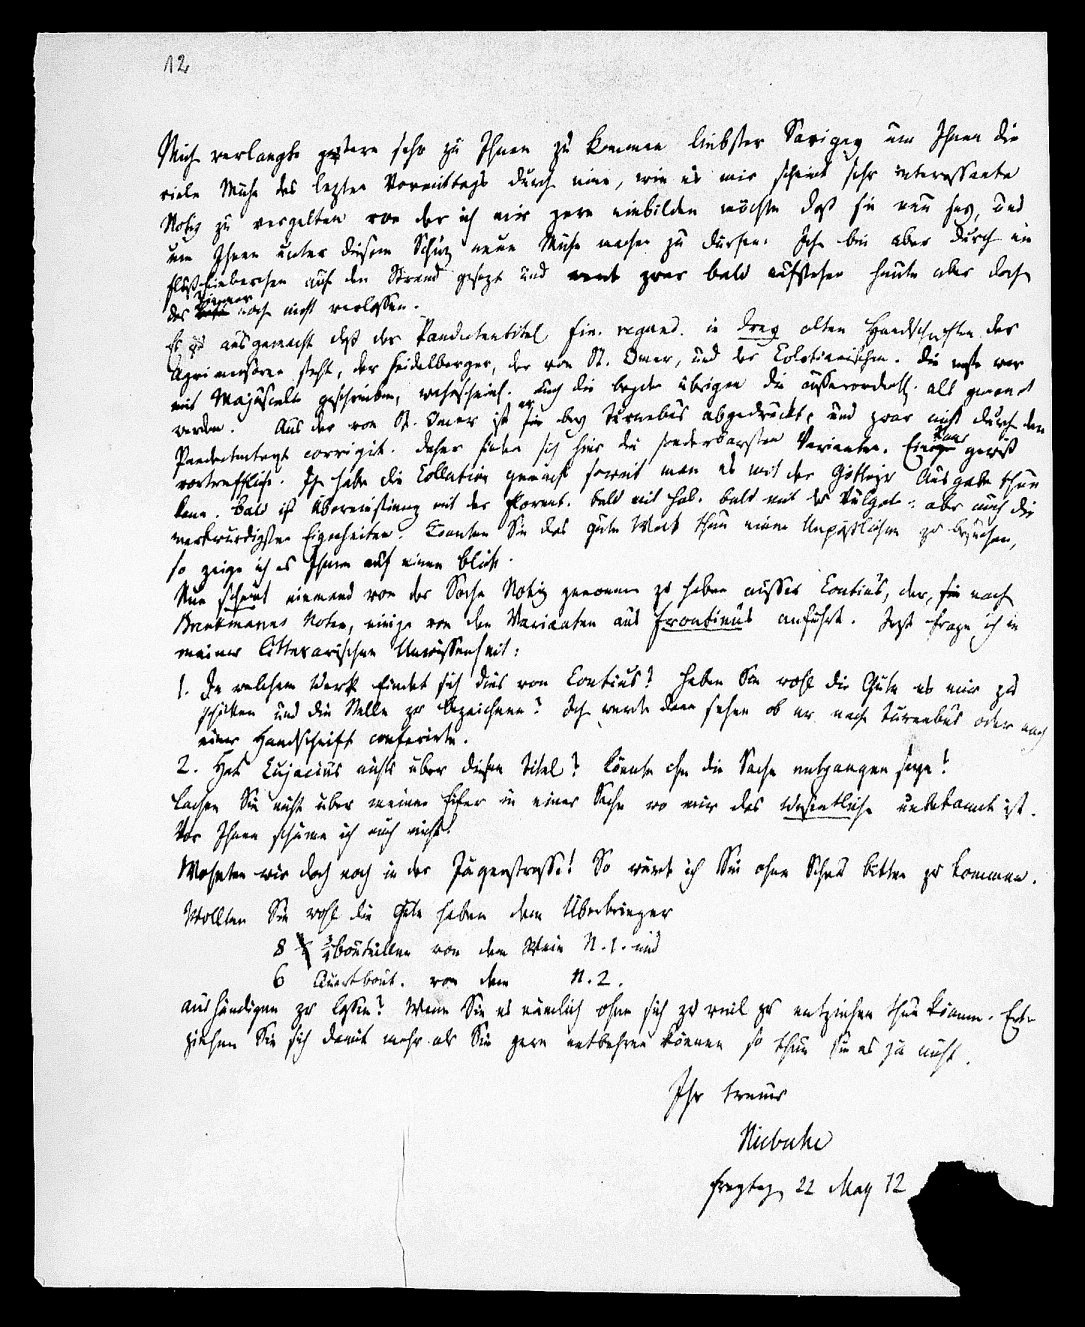 12
Mich verlangte gestern sehr zu Ihnen zu kommen liebster Savigny um Ihnen die
viele Mühe des lezten Vormittags durch eine, wie es mir scheint sehr interessante
Notiz zu vergelten von der ich mir gern einbilden möchte daß sie neu sey, und
um Ihnen unter diesem Schuz neue Mühe machen zu dürfen. Ich bin aber durch ein
Flußfieberchen auf den Strand gesezt und werde zwar bald aufstehen heute aber doch
das Zimmer noch nicht verlassen.
Es ist ausgemacht daß der Pandectentitel fin. regund. in drey alten Handschriften der
Agrimensoren steht, der Heidelberger, der von St. Omer, und der Colotianischen. Die erste war
mit Majuskeln geschrieben, wahrscheinl. auch die beyden übrigen die außerordentl. alt genannt
werden. Aus der von St. Omer ist er bey Turnebus abgedruckt, und zwar nicht durch den
Pandectentext corrigirt. Daher finden sich hier die sonderbarsten Varianten. Einige gewiß
vortrefflich. Ich habe die Collation gemacht soweit man es mit der Göttinger Ausgabe thun
kann. Bald ist Übereinstimmung mit der Florent. bald mit Hal. bald mit der Vulgat.: aber auch die
merkwürdigsten Eigenheiten. Könnten Sie das gute Werk thun einen Unpäßlichen zu besuchen,
so zeige ich es Ihnen auf einen Blick.
Nun scheint niemand von der Sache Notiz genommen zu haben ausser Contius, der, hie nach
Brenkmanns Noten, einige von den Varianten aus Frontinus anführt. Jezt frage ich in
meiner litterarischen Unwissenheit:
1. In welchem Werk findet sich dies von Contius? Haben Sie wohl die Güte es mir zu
schicken und die Stelle zu bezeichnen? Ich werde dann sehen ob er nach Turnebus oder nach
einer Handschrift conferirte.
2. Hat Cujacius nichts über diesen Titel? Könnte ihm die Sache entgangen seyn?
Lachen Sie nicht über meinen Eifer in einer Sache wo mir das Wesentliche unbekannt ist.
Vor Ihnen schäme ich mich nicht.
Wohnten wir doch noch in der Jägerstrasse! So würde ich Sie ohne Scheu bitten zu kommen.
Wollten Sie wohl die Güte haben dem Überbringer
8 bouteillen von dem Wein N. 1. und
6 Quartbout. von dem N. 2.
aushändigen zu lassen? Wenn Sie es nämlich ohne sich zu viel zu entziehen thun können. Ent-
ziehen Sie sich damit mehr als Sie gern entbehren können so thun Sie es ja nicht.
Ihr treuer
Niebuhr
Freytag 22 May 12